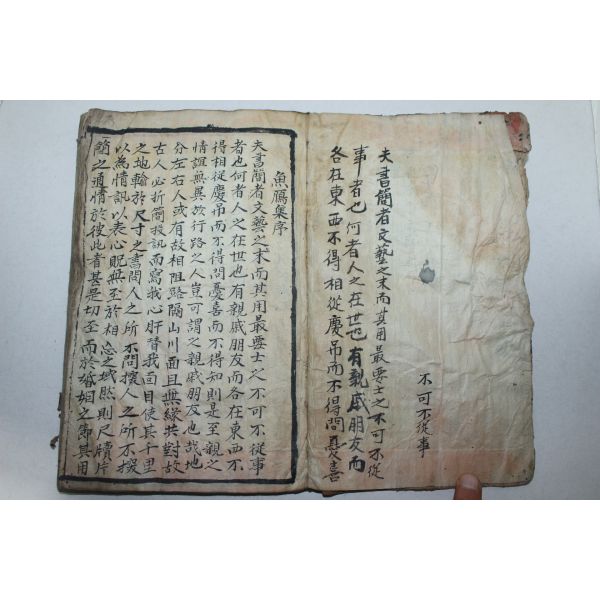 不可不從事
夫書簡者文藝之末而其用最要士之不可不從
事者也何者人之在世也有親戚朋友而
各在東西不得相從慶吊而不得問憂喜
魚鴈集序
夫書簡者文藝之末而其用最要士之不可不從事
者也何者人之在世也有親戚朋友而各在東西不
得相從慶吊而不得問憂喜而不得知則是至親之
情誼無異於行路之人豈可謂之親戚朋友也哉地
分左右人或有故相阻路隔山川面且無緣共對故
古人必折簡投訊而寫我心肝替我面目使其千里
之地輸於尺寸之書問人之所不問撰人之所不撰
以為情訊以表心貺無至於相忘之域然則尺牘片
簡之通情於彼此者甚是切至而於婚姻之節其用